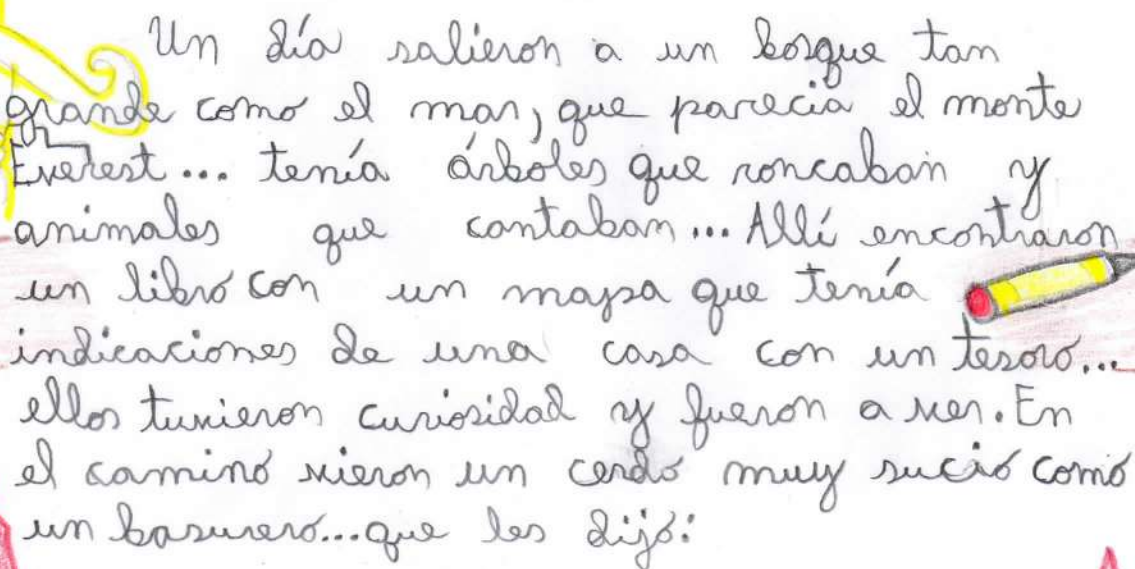 Un día salieron a un bosque tan
grande como el mar, que parecía el monte
Everest... tenía árboles que roncaban y
animales que cantaban... Allí encontraron
un libro con un mapa que tenía
indicaciones de una casa con un tesoro...
ellos tuvieron curiosidad y fueron a ver. En
el camino vieron un cerdo muy sucio como
un basurero...que les dijo: